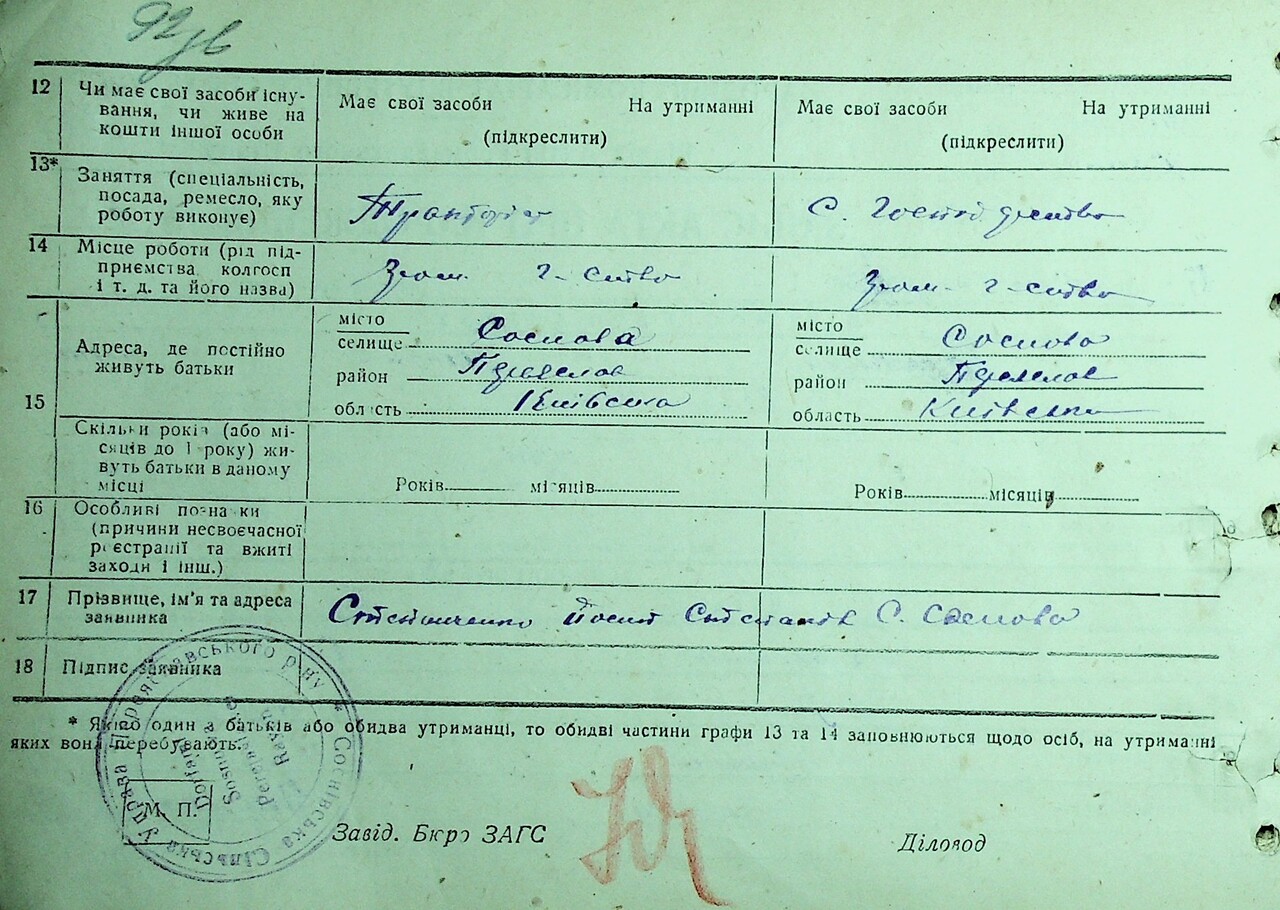 92
12 Чи має свої засоби існу-
вання, чи живе на
кошти іншої особи
Має свої засоби На утриманні
(підкреслити)
Має свої засоби На утриманні
(підкреслити)
13* Заняття (спеціальність,
посада, ремесло, яку
роботу виконує)
Тракторист
С. Господарство
14 Місце роботи (рід під-
приємства колгосп
і т. д. та його назва)
Гром. г-ство
Гром. г-ство
15 Адреса, де постійно
живуть батьки
місто
селище Соснова
район Переяслав
область Київська
місто
селище Соснова
район Переяслав
область Київська
Скільки років (або мі-
сяців до 1 року) жи-
вуть батьки в даному
місці
Років місяців
Років місяців
16 Особливі позначки
(причини несвоєчасної
реєстрації та вжиті
заходи і інш.)
17 Прізвище, ім'я та адреса
заявника
Степанович С. Соснова
18 Підпис заявника
* Якщо один з батьків або обидва утриманці, то обидві частини графи 13 та 14 заповнюються щодо осіб, на утриманні
яких вони перебувають.
Сосновська Сільська Управа Переяславського р-ну
М. П.
Завід. Бюро ЗАГС
Діловод